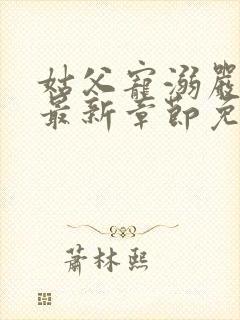 姑父寵溺嚴
最新章節免
蕭林熙